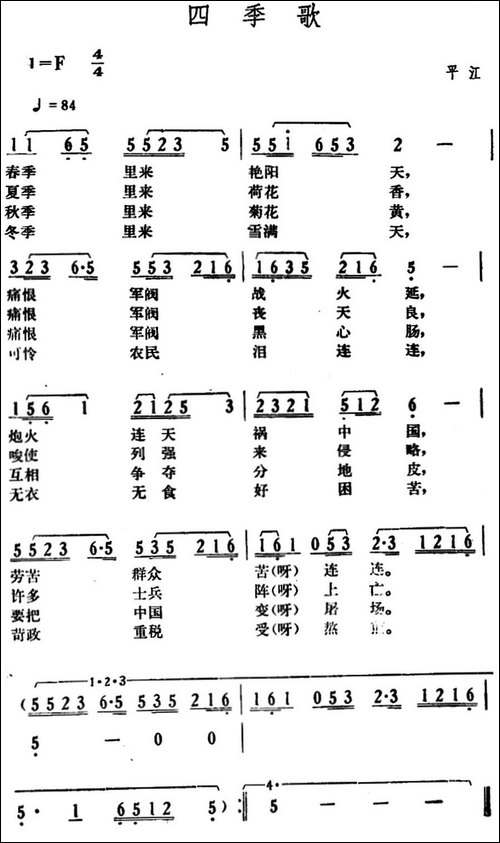 四季歌
1=F 4/4
平江
♩=84
1 1 6 5 5 5 2 3 5 | 5 5 i 6 5 3 2 — |
春季 里来 艳阳 天,
夏季 里来 荷花 香,
秋季 里来 菊花 黄,
冬季 里来 雪满 天,
3 2 3 6·5 5 5 3 2 1 6 | 1 6 3 5 2 1 6 5 — |
痛恨 军阀 战 火 延,
痛恨 军阀 丧 天 良,
痛恨 军阀 黑 心 肠,
可怜 农民 泪 连 连,
1 5 6 1 2 1 2 5 3 | 2 3 2 1 5 1 2 6 — |
炮火 连天 祸 中 国,
唆使 列强 来 侵 略,
互相 争夺 分 地 皮,
无衣 无食 好 困 苦,
5 5 2 3 6·5 5 3 5 2 1 6 | 1 6 1 0 5 3 2·3 1 2 1 6 |
劳苦 群众 苦(呀) 连 连。
许多 士兵 阵(呀) 上 亡。
要把 中国 变(呀) 屠 场。
苛政 重税 受(呀) 熬
1·2·3
(5 5 2 3 6·5 5 3 5 2 1 6 | 1 6 1 0 5 3 2·3 1 2 1 6 |
5 — 0 0 |
4·
5· 1 6 5 1 2 5) :‖ 5 — — — ‖